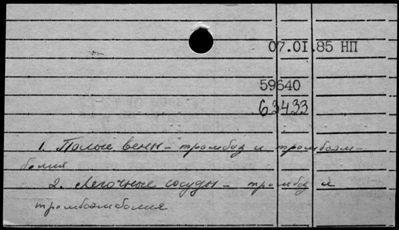 07.01.85 НП
59640
63433
1. Полые вены – тромбоз и тромбоэм-
болия
2. Легочные сосуды – тромбоз и
тромбоэмболия